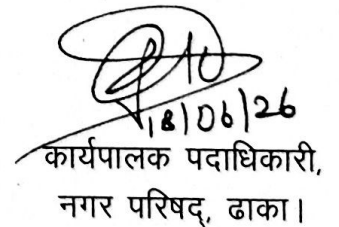 18/06/26
कार्यपालक पदाधिकारी,
नगर परिषद्, ढाका।